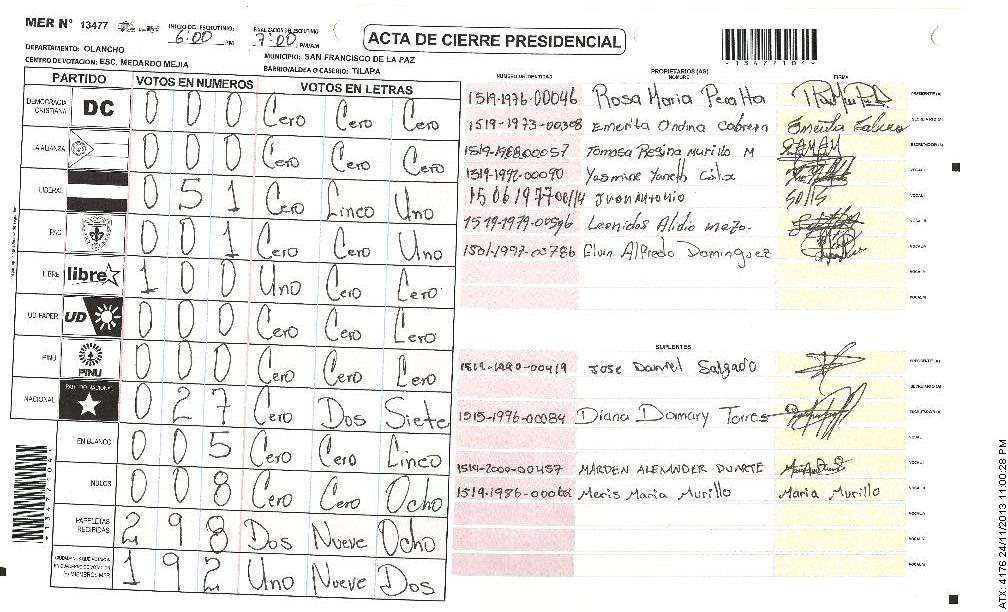 MER N° 13477
INICIO DEL ESCRUTINIO: 6:00 PM
FINALIZACION ESCRUTINIO: 7:00 PM/AM
ACTA DE CIERRE PRESIDENCIAL
*13477104*
DEPARTAMENTO: OLANCHO
MUNICIPIO: SAN FRANCISCO DE LA PAZ
CENTRO DE VOTACION: ESC. MEDARDO MEJIA
BARRIO/ALDEA O CASERIO: TILAPA
PARTIDO VOTOS EN NUMEROS VOTOS EN LETRAS
DEMOCRACIA CRISTIANA DC 0 0 0 Cero Cero Cero
LA ALIANZA 0 0 0 Cero Cero Cero
LIBERAL 0 5 1 Cero Cinco Uno
PAC 0 0 1 Cero Cero Uno
LIBRE libre 1 0 0 Uno Cero Cero
UD FAPER UD 0 0 0 Cero Cero Cero
PINU PINU 0 0 0 Cero Cero Cero
NACIONAL PARTIDO NACIONAL 0 2 7 Cero Dos Siete
EN BLANCO 0 0 5 Cero Cero Cinco
NULOS 0 0 8 Cero Cero Ocho
PAPELETAS RECIBIDAS 2 9 8 Dos Nueve Ocho
1 9 2 Uno Nueve Dos
PROPIETARIOS (AS)
NUMERO DE IDENTIDAD NOMBRE FIRMA
1519-1976-00046 Rosa Maria Peralta PRESIDENTE (A)
1519-1973-00308 Emerita Ondina Cabrera SECRETARIO (A)
1519-1988-00057 Tomasa Regina Murillo M ESCRUTADOR (A)
1519-1992-00090 Yasmine Yaneth VOCAL I
Juan Antonio Solis
1519-1979-00596 Leonidas Alidio
1501-1997-00786 Elvin Alfredo Dominguez
SUPLENTES
Jose Daniel Salgado PRESIDENTE (A)
SECRETARIO (A)
1515-1996-00084 Diana Damary Torres ESCRUTADOR (A)
1519-2000-00457 MARDEN ALEXANDER DUARTE
Meris Maria Murillo Maria Murillo
*13477104*
ATX: 4176 24/11/2013 11:00:28 PM